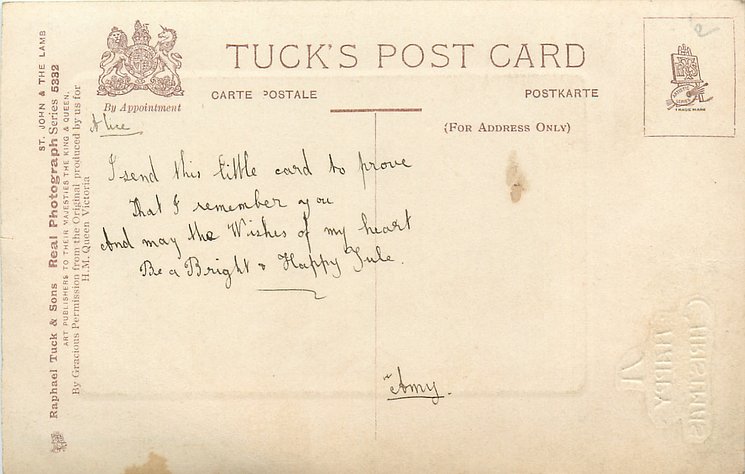 TUCK'S POST CARD
CARTE POSTALE
POSTKARTE
By Appointment
(FOR ADDRESS ONLY)
TRADE MARK
Alice
I send this little card to prove
That I remember you
And may the Wishes of my heart
Be a Bright & Happy Yule.
Amy.
ST. JOHN & THE LAMB
Raphael Tuck & Sons Real Photograph Series 5382
ART PUBLISHERS TO THEIR MAJESTIES THE KING & QUEEN.
By Gracious Permission from the Original produced by us for
H.M. Queen Victoria
A
HAPPY
CHRISTMAS
2